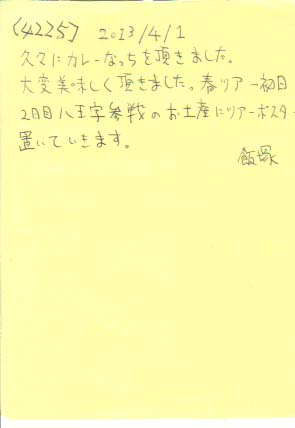 (4225) 2013/4/1
久々にカレーなっちを頂きました。
大変美味しく頂きました。春ツアー初日
2日目八王子参戦のお土産にツアーポスター
置いていきます。
飯塚